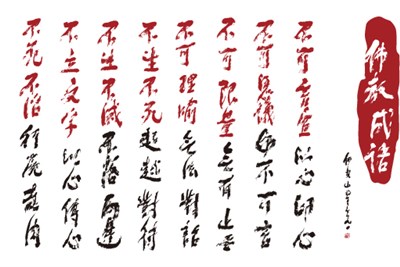 佛教成語
不可言宣 以心印心
不可思議 妙不可言
不可限量 無有止盡
不可理喻 無法對話
不生不死 超越對待
不生不滅
不立文字 以心傳心
不死不活 行屍走肉